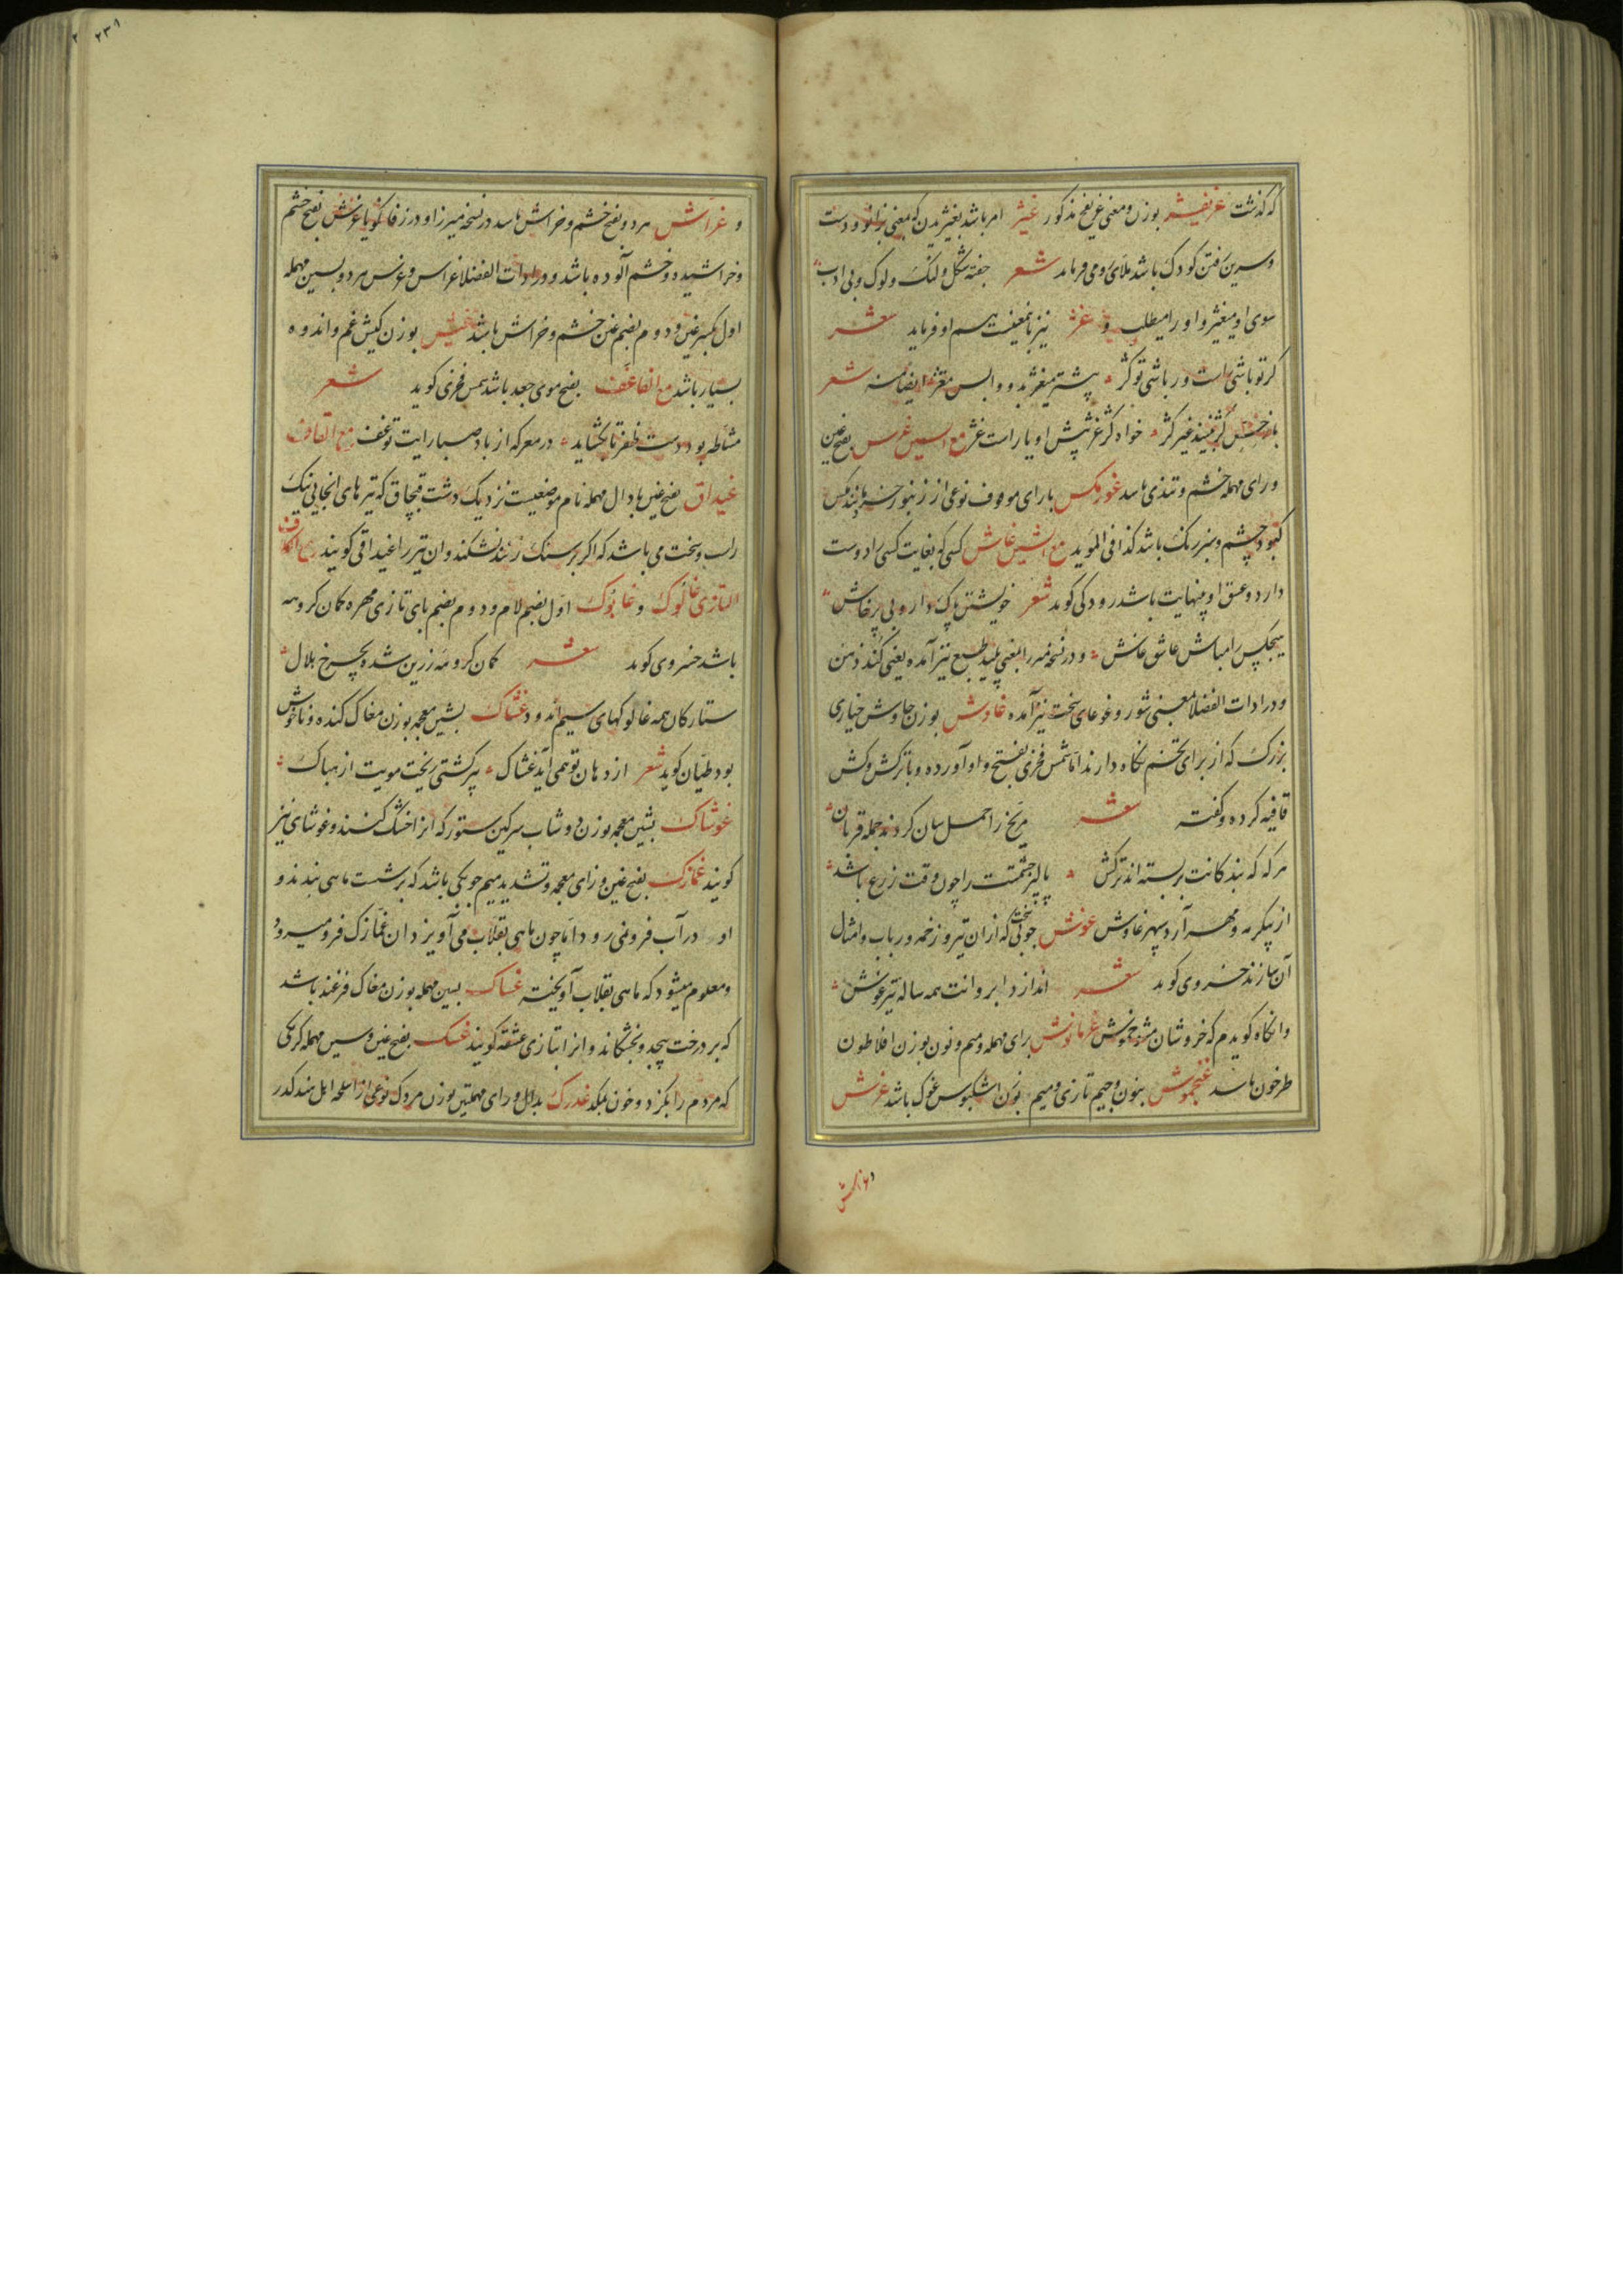 که گذشت غریفیژ بوزن و معنی غریفج مذکور غیژ امر باشد بغیژیدن که بمعنی بزانو و دست
و سرین رفتن کودک باشد ملای رومی فرماید شعر خفته شکل و لنک و لوک و بی ادب
سوی او میغیژ و او را میطلب و غژ نیز باینمعنیست هم او فرماید شعر
کر تو باشی راست ور باشی تو کژ پیشتر میغژ بدو واپس مغژ ایضا منه شعر
کژ نبیند غیر کژ خواه کژ غژ پیش او یا راست غژ مع السین غرس بفتح غین
و رای مهمله خشم و تندی باشد غورمکس بارای موقوف نوعی از زنبور
کبود چشم و سبز رنک باشد کذا فی المؤید مع الشین غاش کسی که بغایت کسی را دوست
دارد و عشق او بنهایت باشد رودکی کوید شعر خویشتن پاک دار و بی پرخاش
هیچکس را مباش عاشق غاش و در نسخه میرزا بمعنی پلید طبع نیز آمده یعنی کند ذهن
و در ادات الفضلا بمعنی شور و غوغای سخت نیز آمده غاوش بوزن چاوش خیاری
بزرک که از برای تخم نکاه دارند اما شمس فخری بفتح واو آورده و با ترکش و کش
قافیه کرده و کفته شعر مریخ را حمل سان کردند جمله قربان
هر که که بندکانت بربسته اند ترکش پالیز حشمتت را چون وقت زرع باشد
از پیکر مه و مهر آرد سپهر غاوش غوش چوبی سخت که ازان تیر و زخمه و رباب و امثال
آن سازند خسروی کوید شعر اندازد ابروانت همه ساله تیر غوش
وانکاه کویدم که خروشان مشو خموش غرمانوش برای مهمله و میم و نون بوزن افلاطون
طرخون باشد غنجموش بنون و جیم تازی و میم بوزن اشکبوس غوک باشد غرش
و غراش
و غراش هردو بفتح خشم و خراش باشد در نسخه میرزا و در زفان کویا غرش بفتح خشم
و خراشیده و خشم آلوده باشد و در ادات الفضلا غراس و غرس هردو بسین مهمله
اول بکسر غین و دوم بضم غین خشم و خراش باشد غیش بوزن کیش غم و اندوه
بسیار باشد مع الفا غف بفتح موی جعد باشد شمس فخری کوید شعر
مشاطه بود دست ظفر تا بکشاید در معرکه از باد صبا رایت تو غف مع القاف
غیداق بفتح غین بادال مهمله نام موضعیست نزدیک دشت قبچاق که تیرهای انجایی نیک
راست و سخت می باشد که اکر بر سنک زنند نشکند و ان تیر را غیداقی کویند مع الکاف
التازی غالوک و غابوک اول بضم لام و دوم بضم بای تازی مهره کمان کروهه
باشد خسروی کوید شعر کمان کروهه زرین شده بچرخ هلال
ستارکان همه غالوکهای سیم اندود غشاک بشین معجمه بوزن مغاک کنده و ناخوش
بود طیان کوید شعر از دهان تو همی آید غشاک پیر کشتی ریخت مویت از هباک
غوشاک بشین معجمه بوزن دوشاب سرکین ستور که انرا خشک کنند و غوشای نیز
کویند غمازک بفتح غین و زای معجمه و تشدید میم چوبکی باشد که بر شست ماهی بندند و
او در آب فرو نمی رود اما چون ماهی بقلاب می آویزد ان غمازک فرو میرود
و معلوم میشود که ماهی بقلاب آویخته غساک بسین مهمله بوزن مغاک فرغند باشد
که بر درخت پیچد و بخشکاند و انرا بتازی عشقه کویند غسک بفتح غین و سین مهمله کرمکی
که مردم را بکزد و خون بمکد غدرک بدال و رای مهملتین بوزن مردک نوعی از اسلحه اهل هند که در